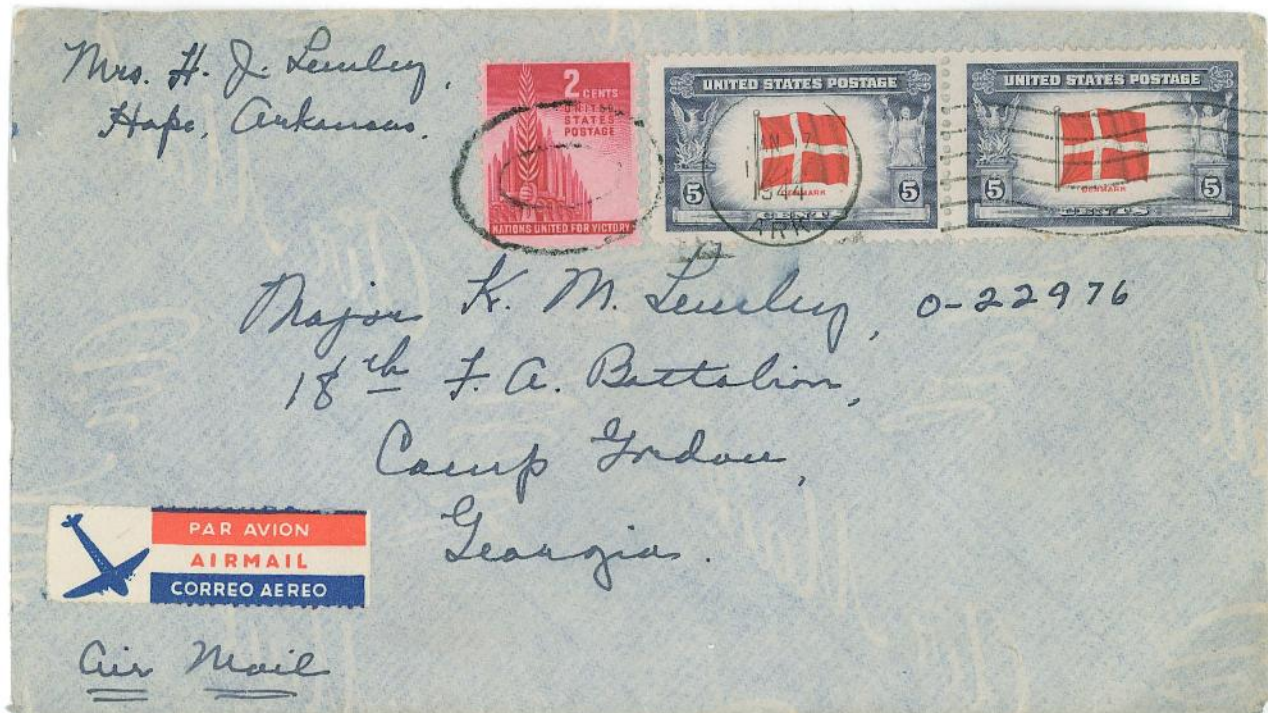 Mrs. H. J. Lemley,
Hope, Arkansas.
2 CENTS
UNITED
STATES
POSTAGE
NATIONS UNITED FOR VICTORY
UNITED STATES POSTAGE
5 5
DENMARK
CENTS
UNITED STATES POSTAGE
5 5
DENMARK
CENTS
17
1944
ARK
Major K. M. Lemley, O-22976
18th F. A. Battalion,
Camp Gordon,
Georgia.
PAR AVION
AIRMAIL
CORREO AEREO
Air Mail